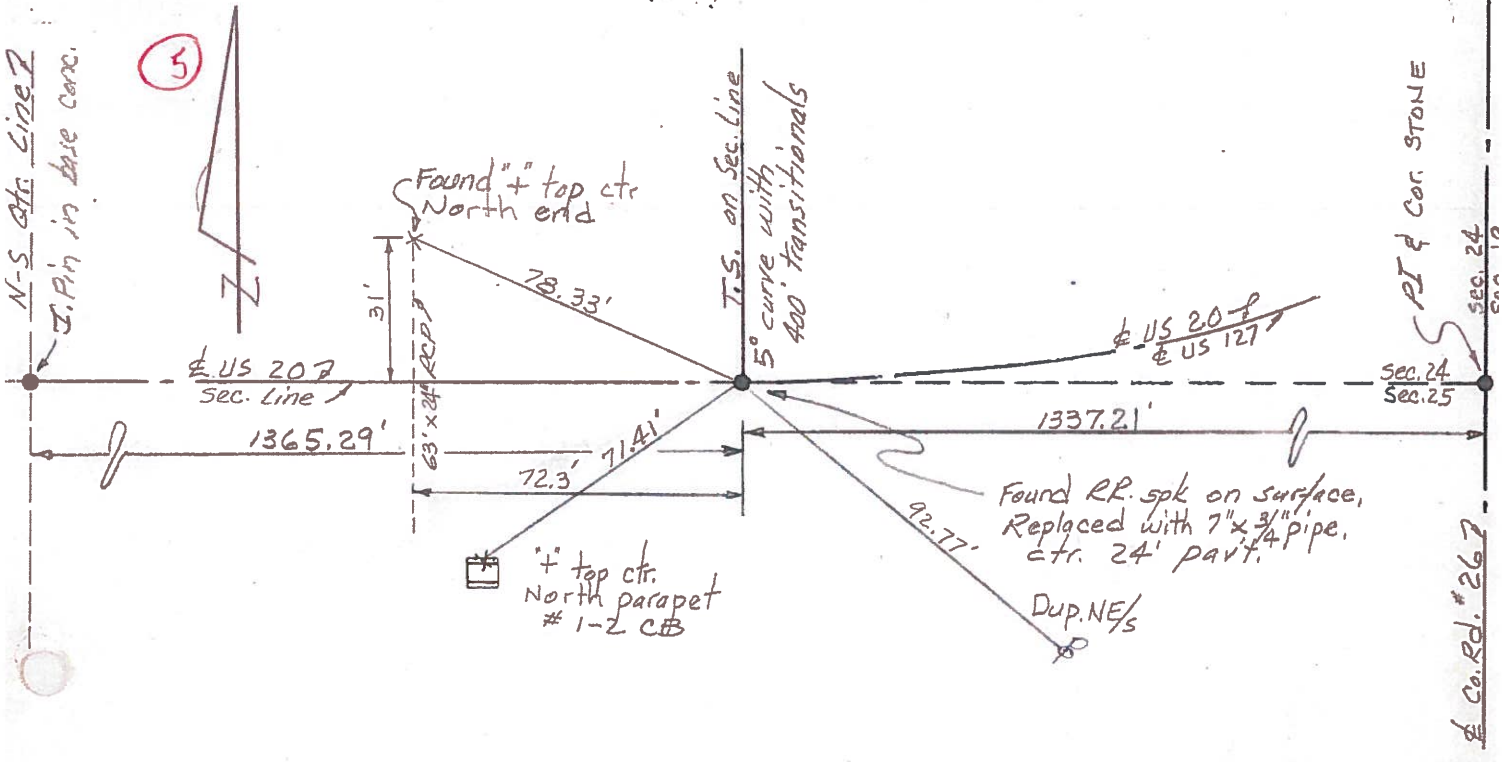 5
N-S Qtr. Line
I. Pin in base conc.
Z
Found "+" top ctr
North end
31'
78.33'
63' x 24" RCP
℄ US 20
Sec. Line
1365.29'
72.3'
71.41'
"+" top ctr.
North parapet
# 1-2 CB
T.S. on Sec. Line
5° curve with
400' transitionals
℄ US 20
℄ US 127
1337.21'
92.77'
Found RR. spk on surface,
Replaced with 7" x 3/4" pipe,
ctr. 24' pav't.
Dup. NE/s
PI & Cor. STONE
Sec. 24
Sec. 24
Sec. 25
℄ Co. Rd. #26